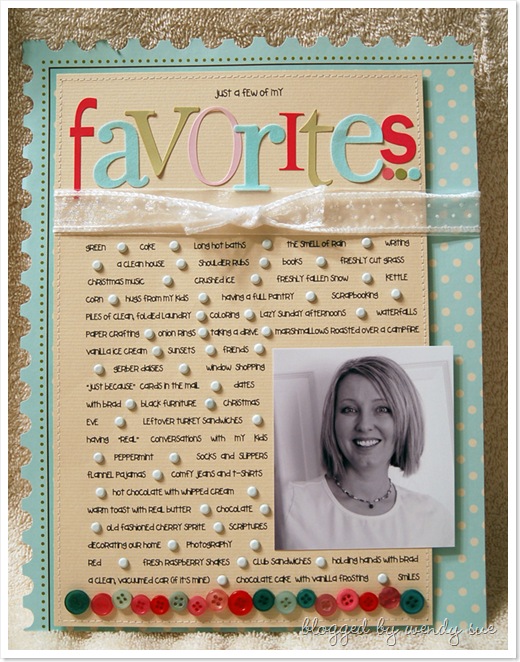 just a few of my
favorites...
green coke long hot baths the smell of rain writing
a clean house shoulder rubs books freshly cut grass
christmas music crushed ice freshly fallen snow kettle
corn hugs from my kids having a full pantry scrapbooking
piles of clean, folded laundry coloring lazy sunday afternoons waterfalls
paper crafting onion rings taking a drive marshmallows roasted over a campfire
vanilla ice cream sunsets friends
gerber daisies window shopping
"just because" cards in the mail dates
with brad black furniture christmas
eve leftover turkey sandwiches
having "real" conversations with my kids
peppermint socks and slippers
flannel pajamas comfy jeans and t-shirts
hot chocolate with whipped cream
warm toast with real butter chocolate
old fashioned cherry sprite scriptures
decorating our home photography
red fresh raspberry shakes club sandwiches holding hands with brad
a clean, vacuumed car (if it's mine) chocolate cake with vanilla frosting smiles
blogged by wendy sue